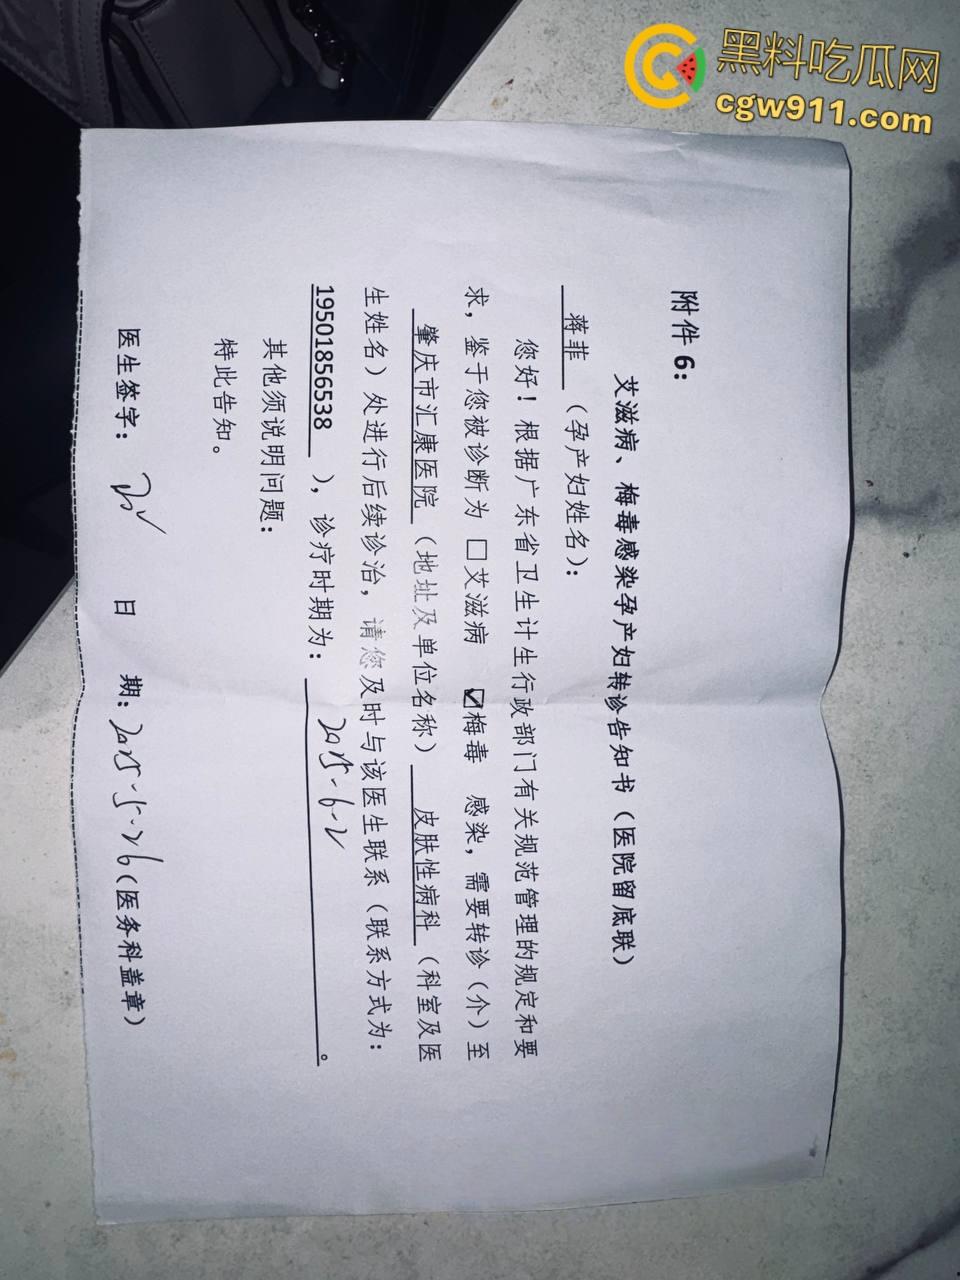 黑料吃瓜网
cgw911.com
附件 6：
艾滋病、梅毒感染孕产妇转诊告知书（医院留底联）
蒋菲（孕产妇姓名）：
您好！根据广东省卫生计生行政部门有关规范管理的规定和要
求，鉴于您被诊断为 □艾滋病 ☑梅毒 感染，需要转诊（介）至
肇庆市汇康医院（地址及单位名称）皮肤性病科（科室及医
生姓名）处进行后续诊治，请您及时与该医生联系（联系方式为：
19501856538），诊疗时期为：2025-6-2。
其他须说明问题：
特此告知。
医生签字： 日 期：2025-5-26（医务科盖章）